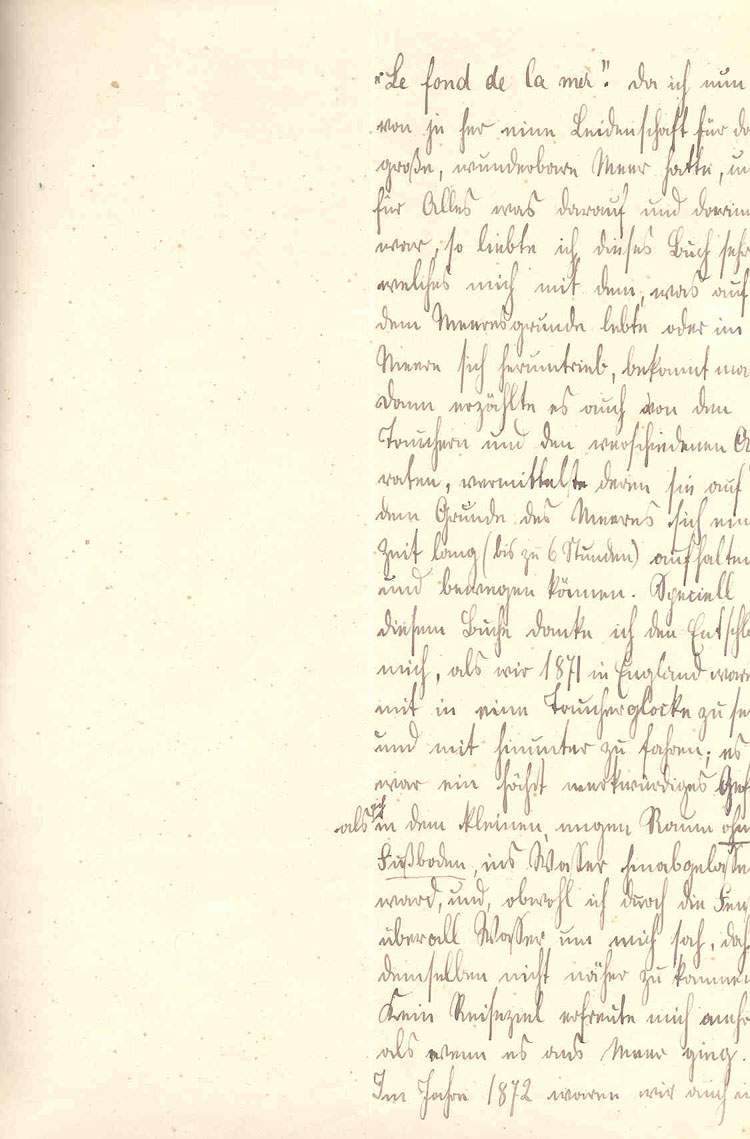 „Le fond de la mer". Da ich nun
von je her eine Leidenschaft für da
große, wunderbare Meer hatte, un
für Alles was darauf und darinn
war, so liebte ich dieses Buch sehr
welches mich mit dem, was auf
dem Meeresgrunde lebte oder im
Meere sich herumtrieb, bekannt ma
Dann erzählte es auch von den
Tauchern und den verschiedenen A
raten, vermittelste deren sie auf
dem Grunde des Meeres sich ein
Zeit lang (bis zu 6 Stunden) aufhalten
und bewegen können. Speciell
diesem Buche danke ich den Entschl
mich, als wir 1871 in England ware
mit in eine Taucherglocke zu se
und mit hinunter zu fahren; es
war ein höchst merkwürdiges Gef
als ich in dem kleinen, engen Raum ohn
Fußboden, ins Wasser hinabgelasse
ward, und, obwohl ich durch die Fen
überall Wasser um mich sah, doch
demselben nicht näher zu kommen
Kein Reiseziel erfreute mich mehr
als wenn es ans Meer ging.
Im Jahre 1872 waren wir auch ei